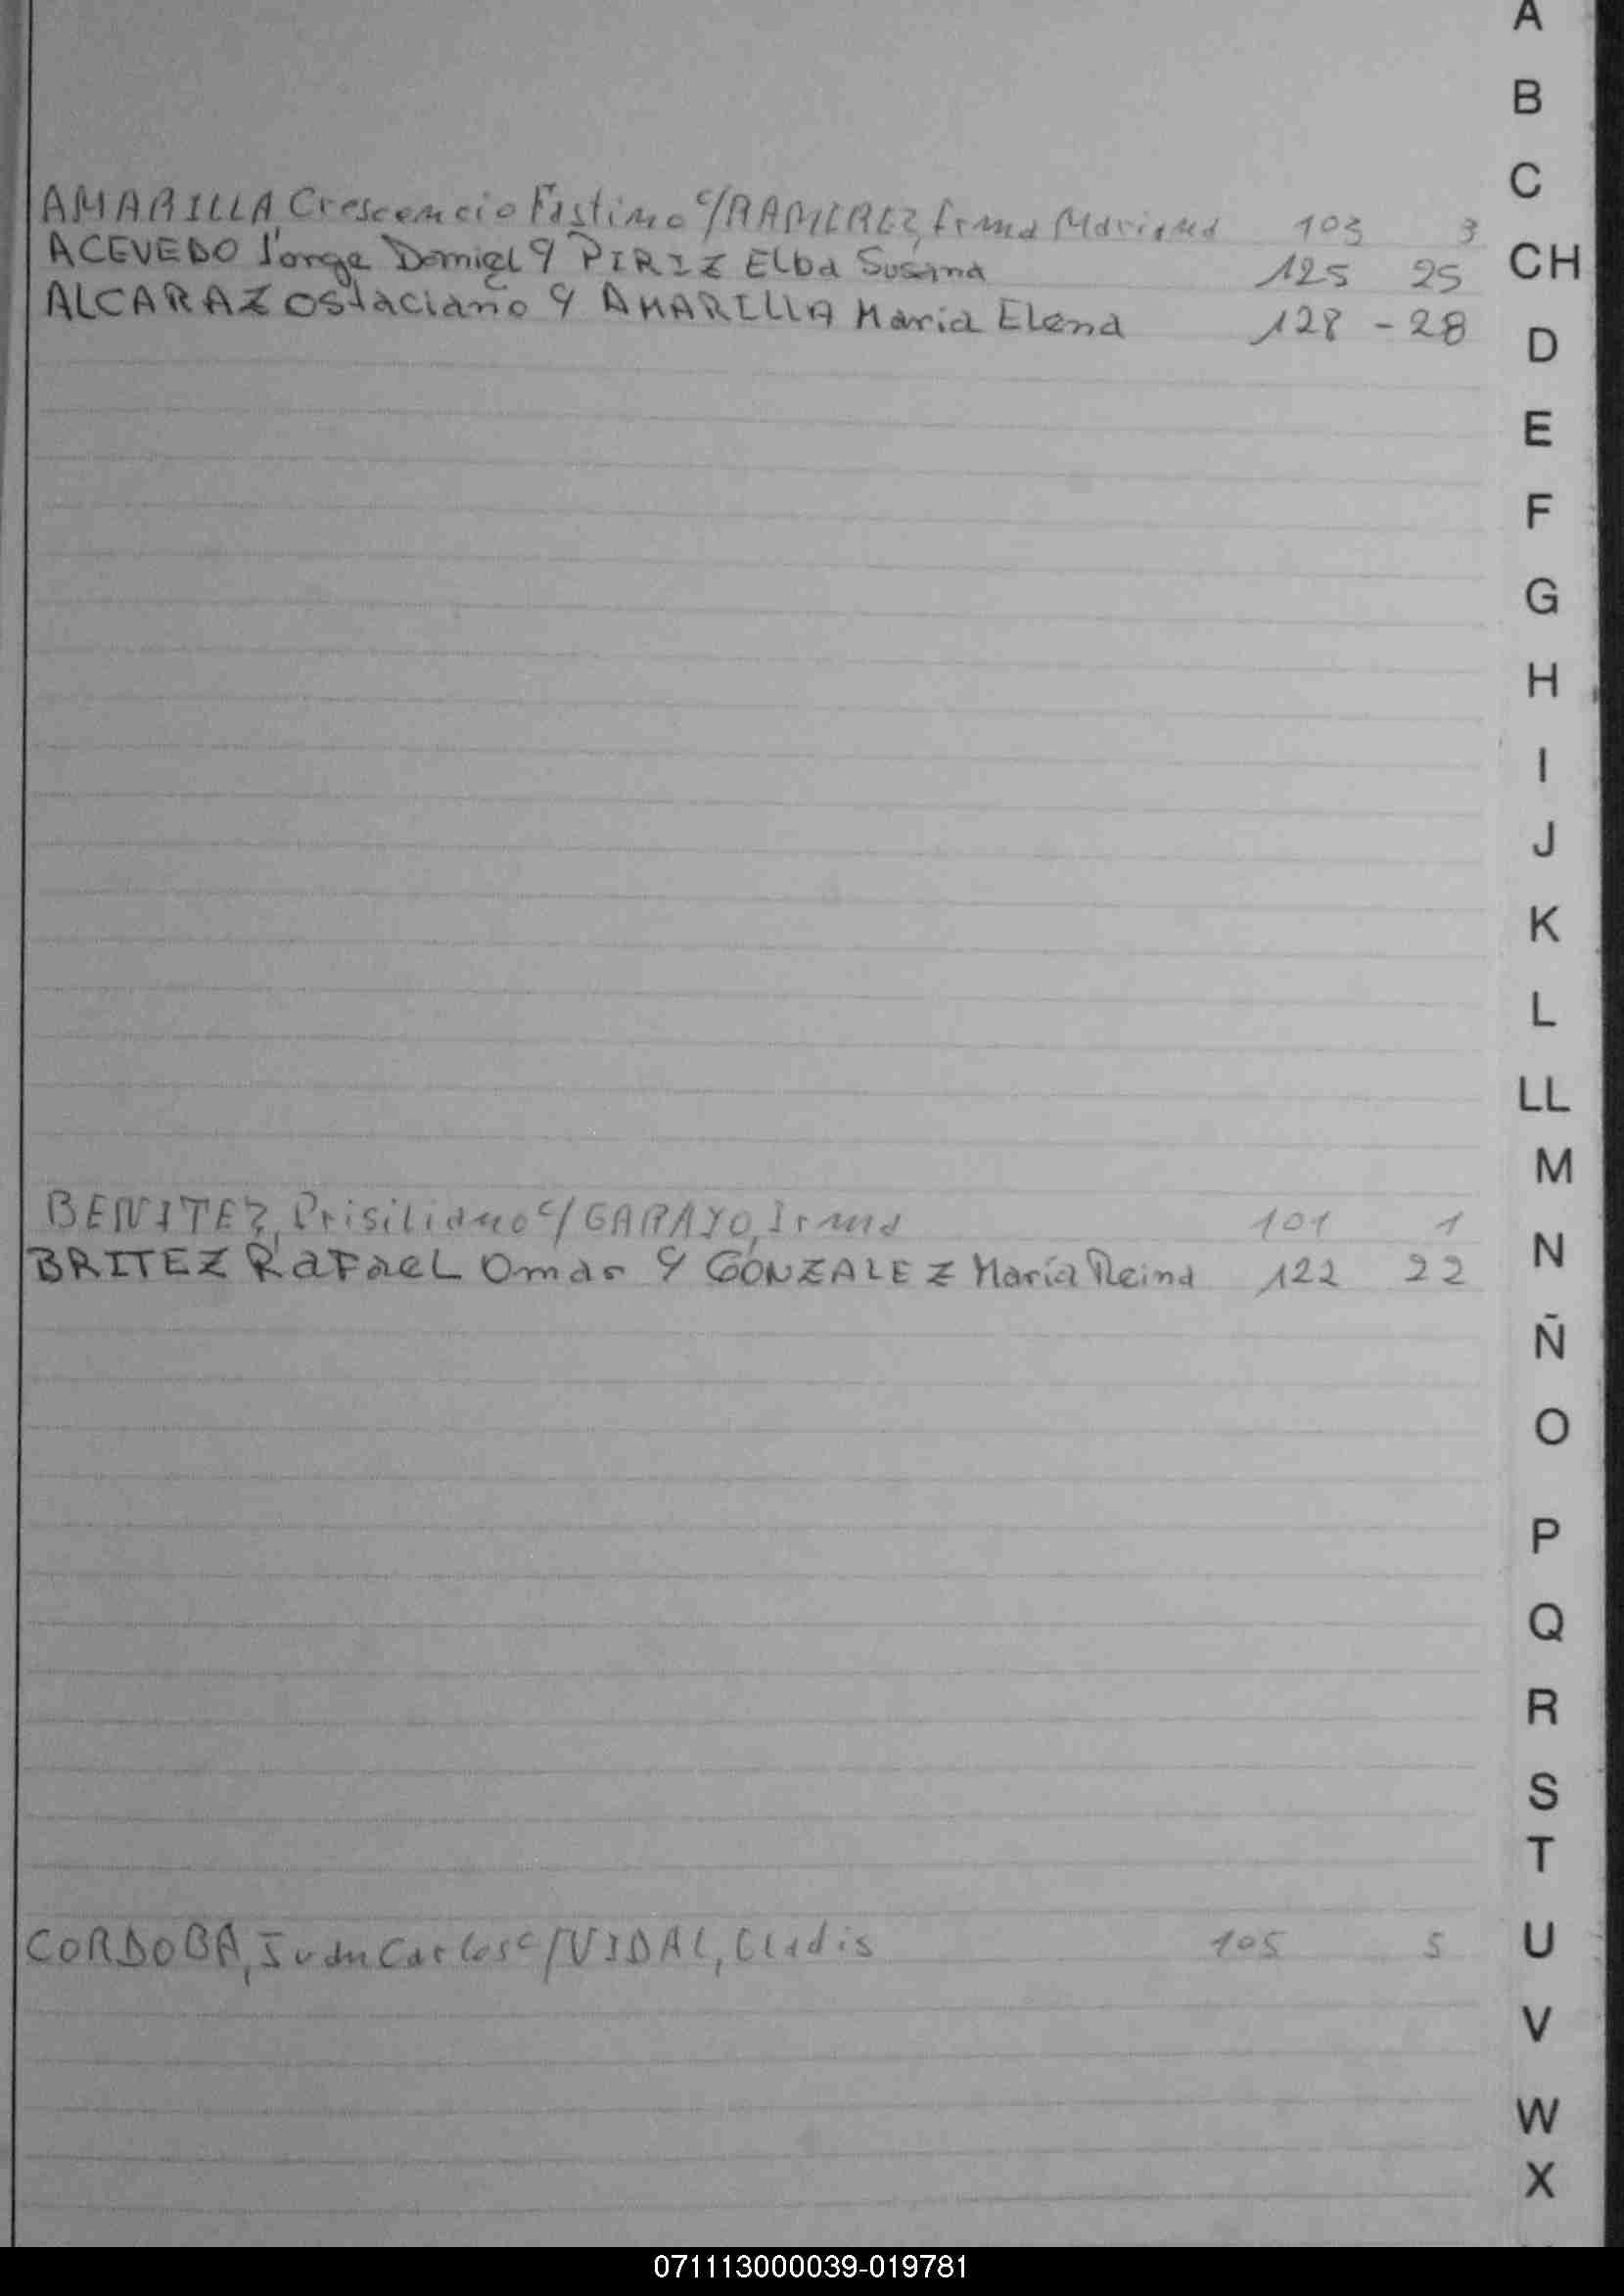 A
B
C
AMARILLA, Crescencio Fastino c/ RAMIREZ, Irma Mariana 103 3
ACEVEDO Jorge Daniel y PIRIZ Elba Susana 125 25
CH
ALCARAZ Ostaciano y AMARILLA Maria Elena 128 - 28
D
E
F
G
H
I
J
K
L
LL
M
BENITEZ, Prisiliano c/ GARAYO, Irma 101 1
N
BRITEZ Rafael Omar y GONZALEZ María Reina 122 22
Ñ
O
P
Q
R
S
T
CORDOBA, Juan Carlos c/ VIDAL, Cladis 105 5
U
V
W
X
071113000039-019781